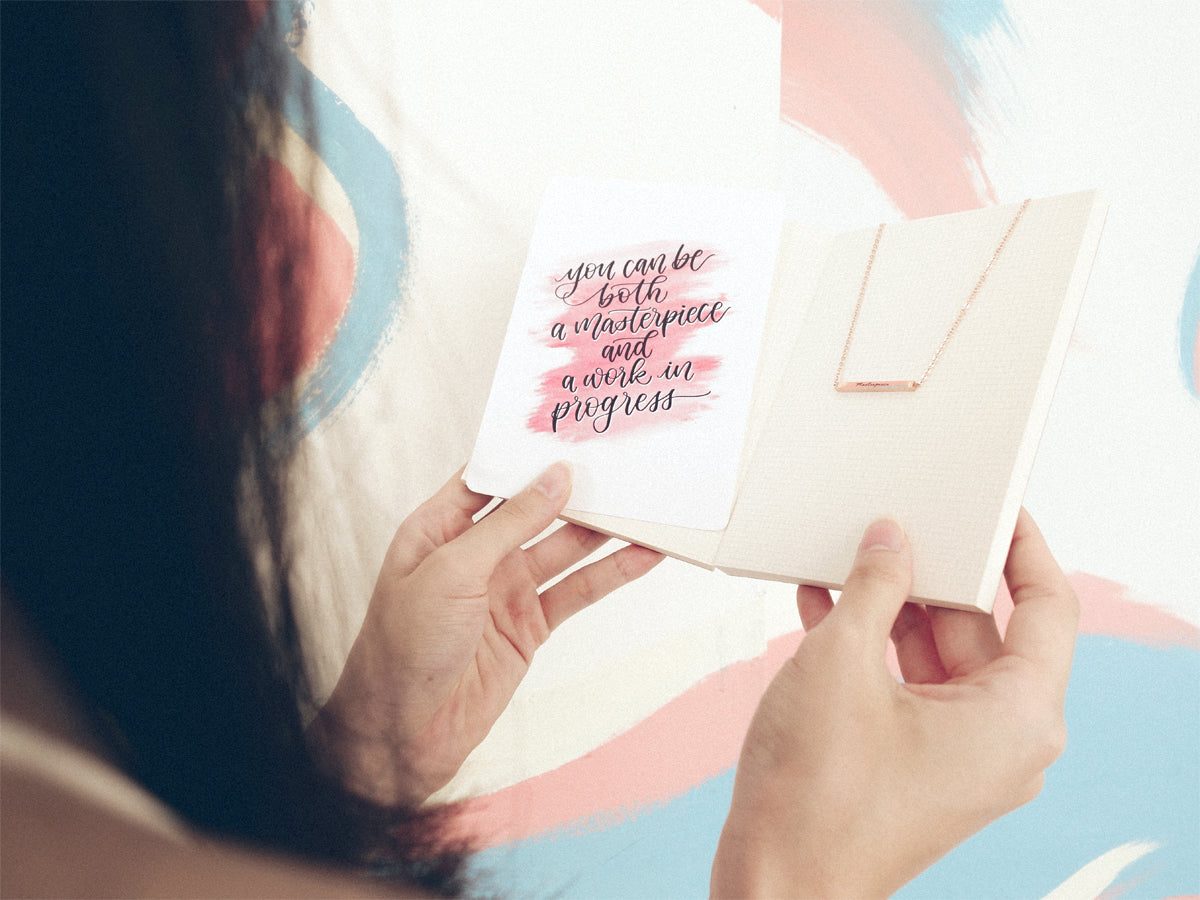 you can be
both
a masterpiece
and
a work in
progress
Masterpiece